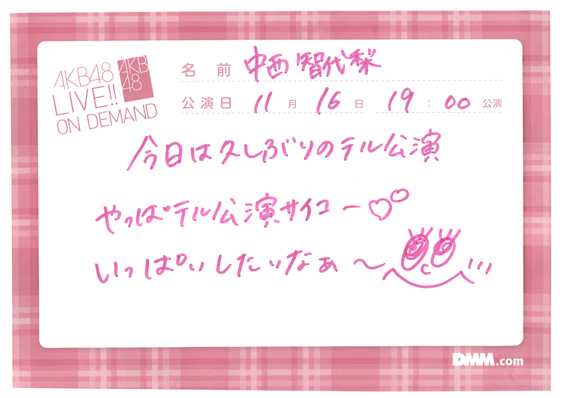 AKB48
LIVE!!
ON DEMAND
AKB
48
名前 中西智代梨
公演日 11月16日 19:00公演
今日は久しぶりのテル公演
やっぱテル公演サイコー♡
いっぱいしたいなぁ〜
DMM.com